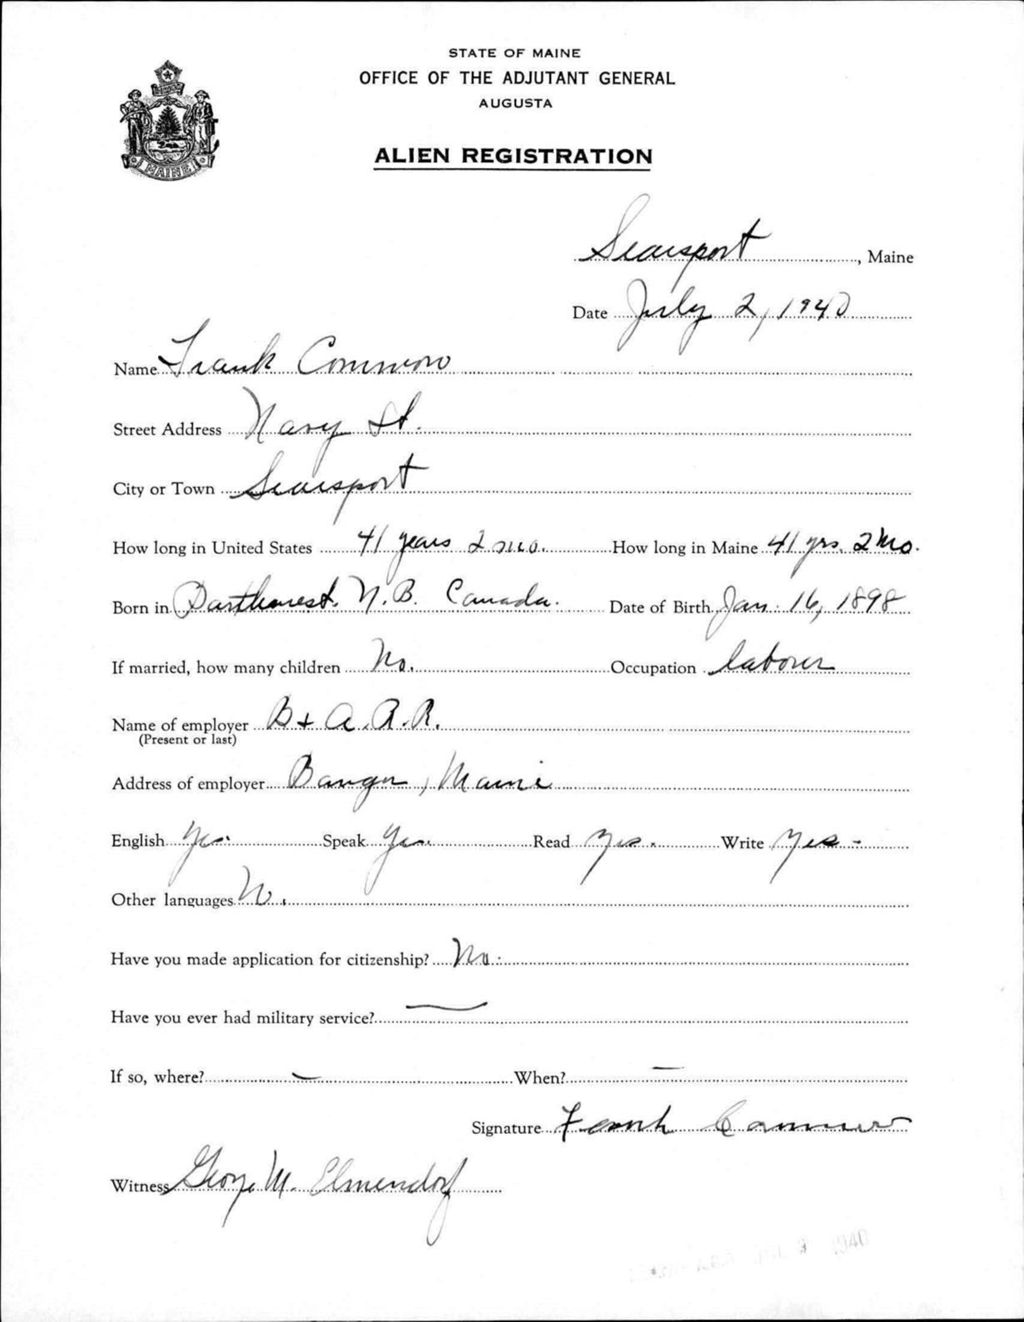 STATE OF MAINE
OFFICE OF THE ADJUTANT GENERAL
AUGUSTA
ALIEN REGISTRATION
MAINE
Searsport, Maine
Date July 2, 1940
Name Frank Common
Street Address Navy St.
City or Town Searsport
How long in United States 41 years 2 mo. How long in Maine 41 yrs. 2 mo.
Born in N.B. Canada. Date of Birth Jan. 16, 1898
If married, how many children No. Occupation laborer
Name of employer B + A. R. R.
(Present or last)
Address of employer Bangor, Maine
English Yes. Speak Yes. Read Yes. Write Yes -
Other languages No.
Have you made application for citizenship? No.
Have you ever had military service? —
If so, where? — When? —
Signature Frank Common
Witness George M. Elmendorf
1940